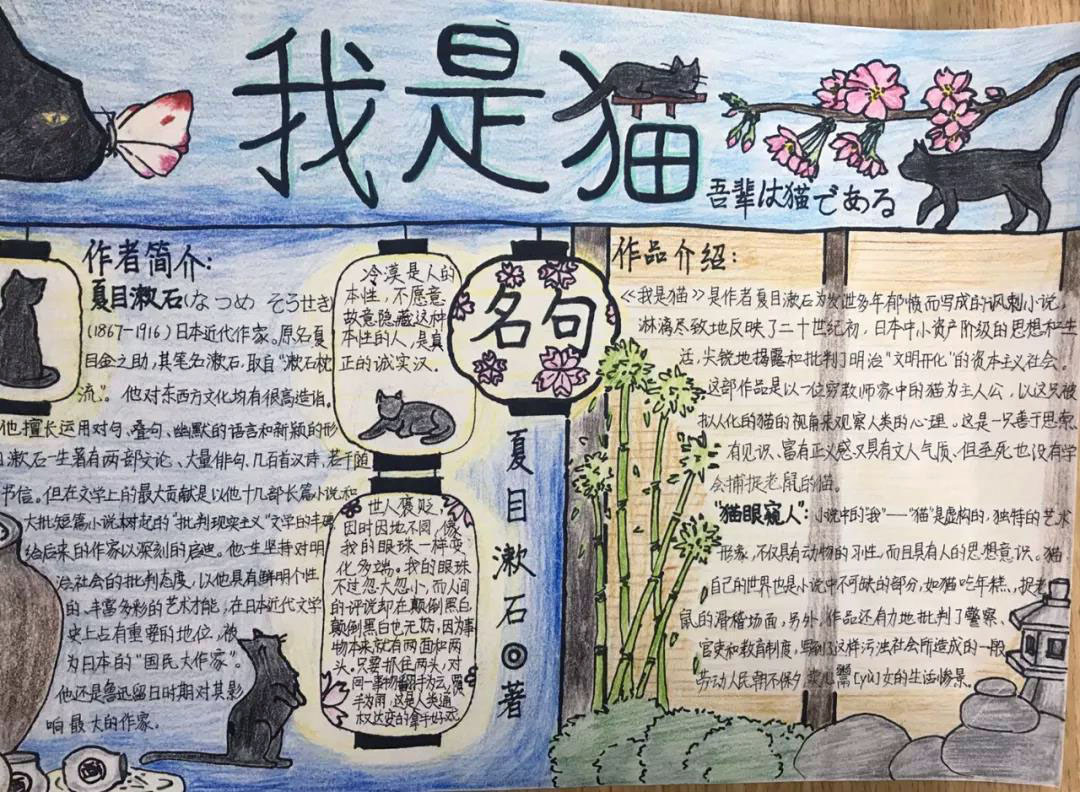 我是猫
吾輩は猫である
作者简介：
夏目漱石(なつめ そうせき)
(1867-1916)日本近代作家。原名夏
目金之助，其笔名漱石，取自"漱石枕
流"。他对东西方文化均有很高造诣。
他擅长运用对句、叠句、幽默的语言和新颖的形
漱石一生著有两部文论、大量俳句、几百首汉诗，若干随
书信。但在文学上的最大贡献是以他十几部长篇小说和
大批短篇小说树起的"批判现实主义"文学的丰碑
给后来的作家以深刻的启迪。他一生坚持对明
治社会的批判态度，以他具有鲜明个性
的、丰富多彩的艺术才能，在日本近代文学
史上占有重要的地位，被
为日本的"国民大作家"。
他还是鲁迅留日时期对其影
响最大的作家。
冷漠是人的
本性，不愿意
故意隐藏这种
本性的人，是真
正的诚实汉。
世人褒贬，
因时因地不同，像
我的眼珠一样变
化多端。我的眼珠
不过忽大忽小，而人间
的评说却在颠倒黑白，
颠倒黑白也无妨，因为事
物本来就有两面和两
头。只要抓住两头，对
同一事物翻手为云，覆
手为雨，这是人类通
权达变的拿手好戏。
名句
夏目漱石◎著
作品介绍：
《我是猫》是作者夏目漱石为发泄多年郁愤而写成的讽刺小说，
淋漓尽致地反映了二十世纪初，日本中小资产阶级的思想和生
活，尖锐地揭露和批判了明治"文明开化"的资本主义社会。
这部作品是以一位穷教师家中的猫为主人公，以这只被
拟人化的猫的视角来观察人类的心理。这是一只善于思索、
有见识、富有正义感又具有文人气质、但至死也没有学
会捕捉老鼠的猫。
"猫眼窥人"：小说中的"我"——"猫"是虚构的，独特的艺术
形象，不仅具有动物的习性，而且具有人的思想意识。猫
自己的世界也是小说中不可缺的部分，如猫吃年糕，捉老
鼠的滑稽场面，另外，作品还有力地批判了警察、
官吏和教育制度，写到了这样污浊社会所造成的一般
劳动人民朝不保夕、卖儿鬻[yù]女的生活惨景。